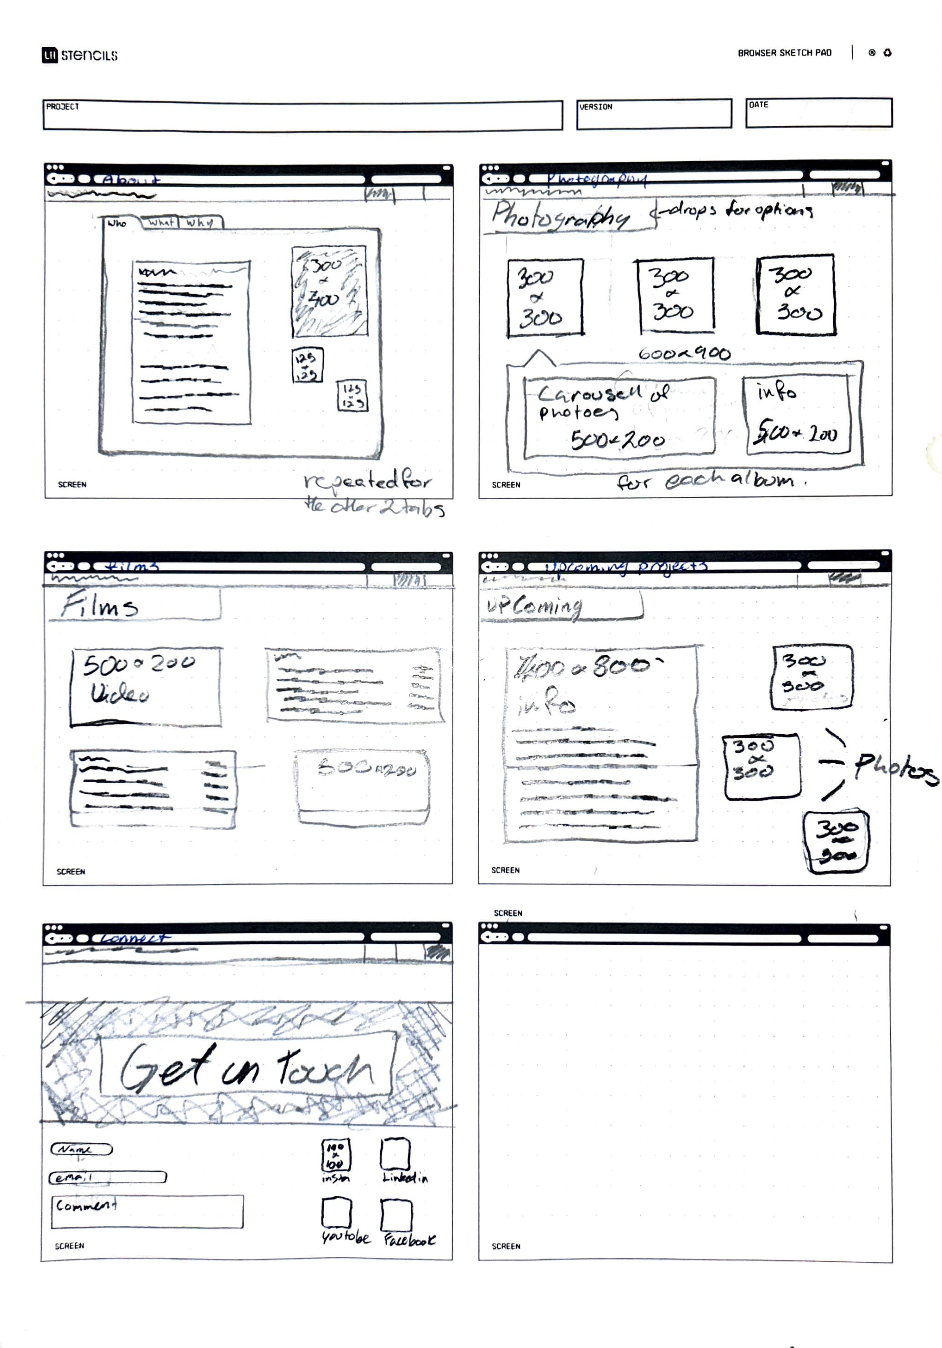 UI STENCILS
BROWSER SKETCH PAD
PROJECT
VERSION
DATE
About
Who What Why
300
x
400
125
x
125
125
x
125
SCREEN
repeated for
the other 2 tabs
Photography
Photography
drops for options
300
x
300
300
x
300
300
x
300
600x900
Carousell of
photoes
500x200
info
500x200
SCREEN
for each album.
Films
Films
500x200
Video
500x200
SCREEN
Upcoming projects
UPComing
info
300
x
300
300
x
300
Photos
300
x
300
SCREEN
Connect
Get in Touch
Name
email
Comment
100
x
100
insta
Linkedin
Youtobe
Facebook
SCREEN
SCREEN
SCREEN